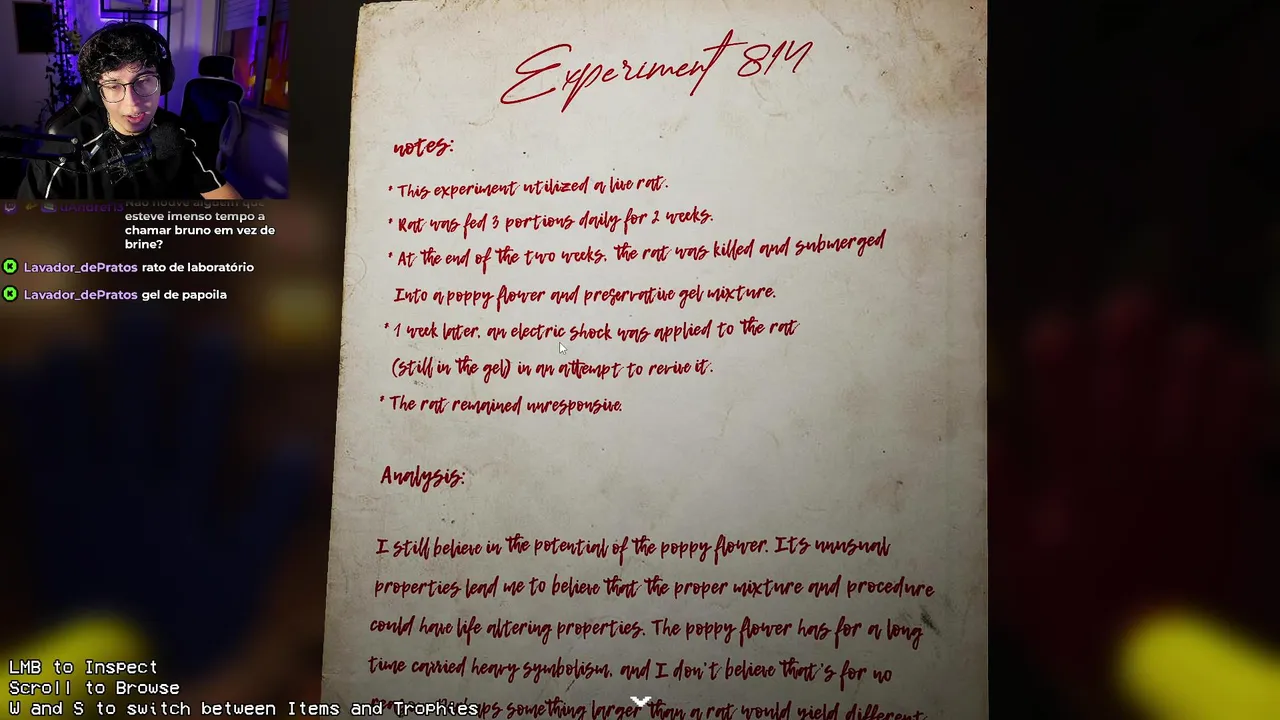 Experiment 814
notes:
* This experiment utilized a live rat.
* Rat was fed 3 portions daily for 2 weeks.
* At the end of the two weeks, the rat was killed and submerged
Into a poppy flower and preservative gel mixture.
* 1 week later, an electric shock was applied to the rat
(still in the gel) in an attempt to revive it.
* The rat remained unresponsive.
Analysis:
I still believe in the potential of the poppy flower. Its unusual
properties lead me to believe that the proper mixture and procedure
could have life altering properties. The poppy flower has for a long
time carried heavy symbolism, and I don't believe that's for no
something larger than a rat would yield different
esteve imenso tempo a
chamar bruno em vez de
brine?
Lavador_dePratos rato de laboratório
Lavador_dePratos gel de papoila
LMB to Inspect
Scroll to Browse
W and S to switch between Items and Trophies